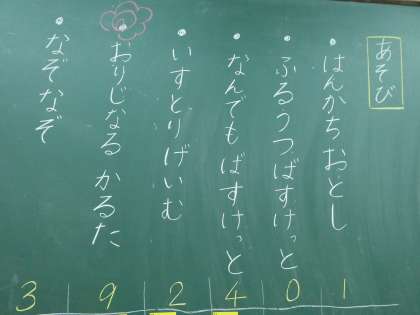 あそび
・はんかちおとし
・ふるうつばすけっと
・なんでもばすけっと
・いすとりげいむ
・おりじなる かるた
・なぞなぞ
3 9 2 4 0 1